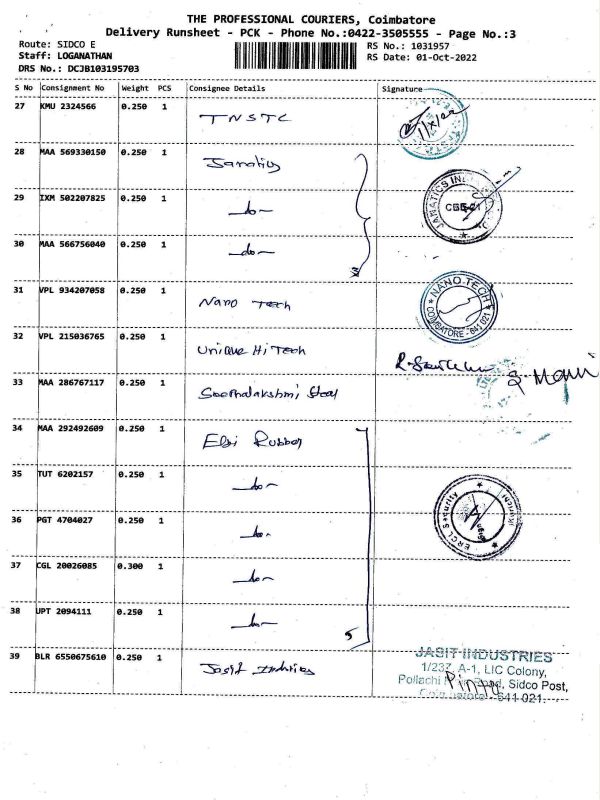 THE PROFESSIONAL COURIERS, Coimbatore
Delivery Runsheet - PCK - Phone No.:0422-3505555 - Page No.:3
Route: SIDCO E
RS No.: 1031957
Staff: LOGANATHAN
RS Date: 01-Oct-2022
DRS No.: DCJB103195703
S No Consignment No Weight PCS Consignee Details Signature
27 KMU 2324566 0.250 1 TNSTC
1/x/22
28 MAA 569330150 0.250 1
29 IXM 502207825 0.250 1 -do-
JANATICS IN
30 MAA 566756040 0.250 1 -do-
31 VPL 934207058 0.250 1 Nano Tech
NANO TECH
COIMBATORE - 641 021
32 VPL 215036765 0.250 1 Unique Hi Tech
33 MAA 286767117 0.250 1 Steel
S. Mani
34 MAA 292492609 0.250 1 Elgi Rubber
35 TUT 6202157 0.250 1 -do-
36 PGT 4704027 0.250 1 -do-
ERCL Security
37 CGL 20026085 0.300 1 -do-
38 UPT 2094111 0.250 1 -do-
5
39 BLR 6550675610 0.250 1 Jasit Industries
JASIT INDUSTRIES
1/237, A-1, LIC Colony,
Pollachi Road, Sidco Post,
Coimbatore - 641 021.
Pintu